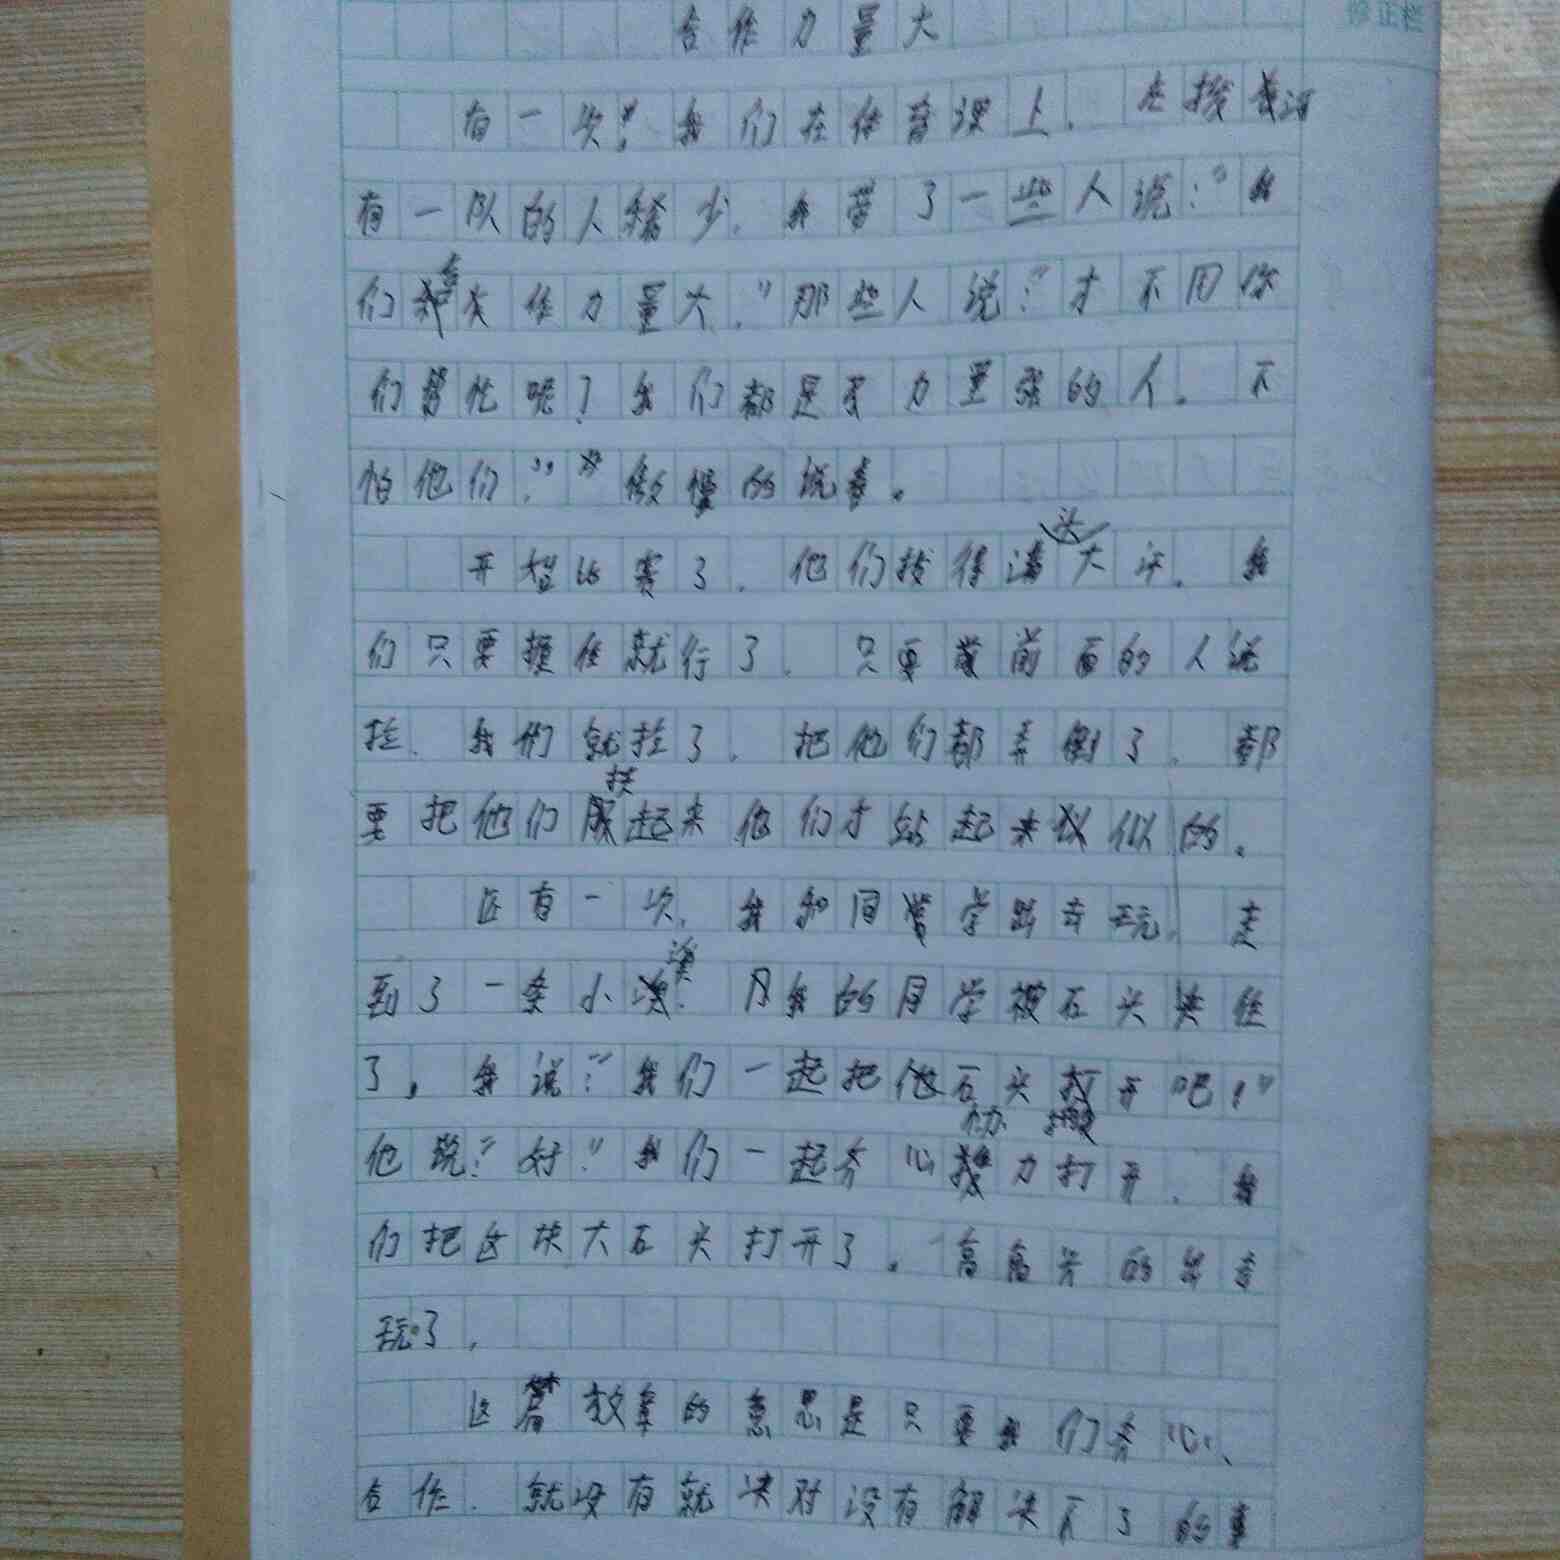 修正栏
合作力量大
有一次，我们在体育课上，在拔河
有一队的人很少，我带了一些人说：“我
们合作力量大。”那些人说：“才不用你
们帮忙呢？我们都是力量强的人。不
怕他们。”傲慢的说着。
开始比赛了，他们拔得满头大汗，我
们只要握住就行了，只要前面的人说
拉，我们就拉了，把他们都弄倒了，都
要把他们扶起来他们才站起来似的。
还有一次，我和同学出去玩，走
到了一条小溪，我的同学被石头夹住
了，我说：“我们一起把石头打开吧！”
他说：“好”我们一起齐心协力打开，我
们把这块大石头打开了。高高兴的出去
玩了，
这篇故事的意思是只要我们齐心、
合作，就没有就决对没有解决不了的事